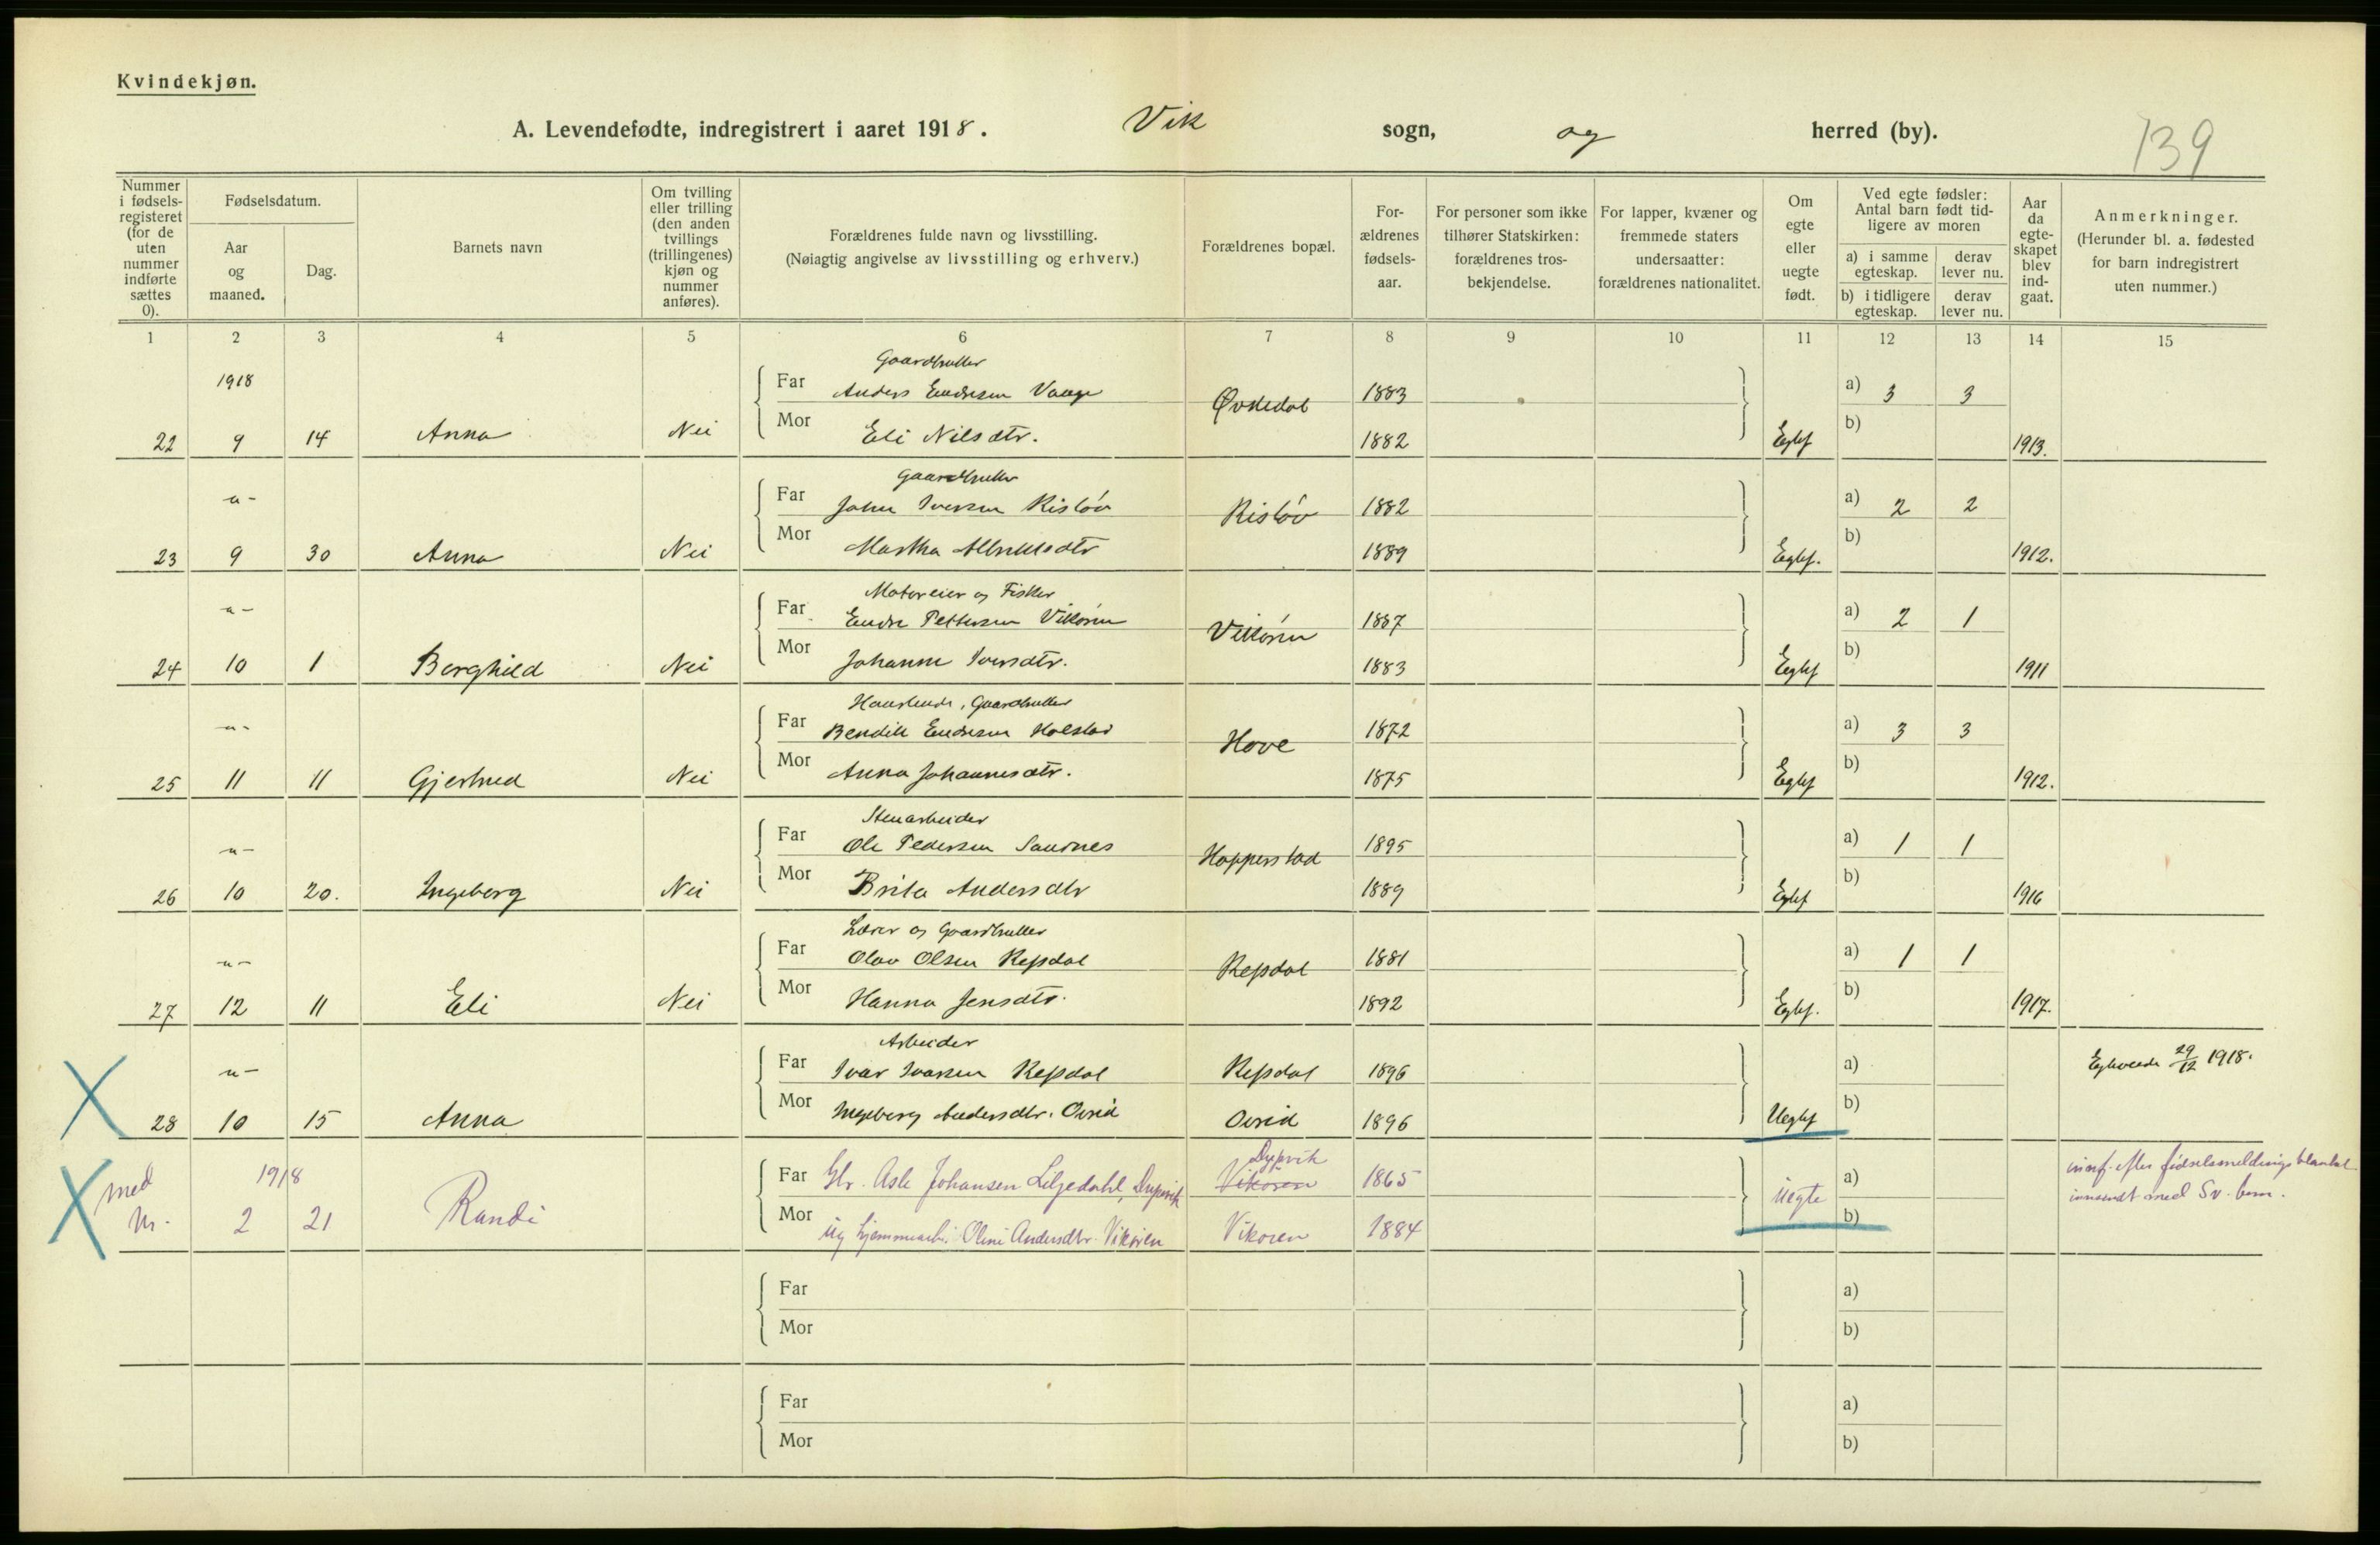 Kvindekjøn.
A. Levendefødte, indregistrert i aaret 1918. Vik sogn, og herred (by).
139
Nummer i fødsels-registeret (for de uten nummer indførte sættes 0).
Fødselsdatum.
Aar og maaned.
Dag.
Barnets navn
Om tvilling eller trilling (den anden tvillings (trillingenes) kjøn og nummer anføres).
Forældrenes fulde navn og livsstilling.
(Nøiagtig angivelse av livsstilling og erhverv.)
Forældrenes bopæl.
For-ældrenes fødsels-aar.
For personer som ikke tilhører Statskirken: forældrenes tros-bekjendelse.
For lapper, kvæner og fremmede staters undersaatter: forældrenes nationalitet.
Om egte eller uegte født.
Ved egte fødsler: Antal barn født tid-ligere av moren
a) i samme egteskap.
derav lever nu.
b) i tidligere egteskap.
derav lever nu.
Aar da egte-skapet blev ind-gaat.
Anmerkninger.
(Herunder bl. a. fødested for barn indregistrert uten nummer.)
1 2 3 4 5 6 7 8 9 10 11 12 13 14 15
Gaardbruker
1918 Far Anders Endresen Vange Øvstedal 1883 a) 3 3
22 9 14 Anna Nei Mor Eli Nilsdtr. 1882 b) 1913.
Gaardbruker
-"- Far John Iversen Risløv Risløv 1882 a) 2 2
23 9 30 Anna Nei Mor Martha 1889 b) 1912.
Motoreier og Fisker
-"- Far Endre Pettersen Vikøren Vikøren 1887 a) 2 1
24 10 1 Borghild Nei Mor Johanne Iversdtr. 1883 b) 1911
Gaardbruker
-"- Far Bendik Endresen Holstad Hove 1872 a) 3 3
25 11 11 Gjertrud Nei Mor Anna Johannesdtr. 1875 b) 1912.
Stenarbeider
-"- Far Ole Pedersen Sandnes Hopperstad 1895 a) 1 1
26 10 20. Ingeborg Nei Mor Brita Andersdtr 1889 b) 1916
Lærer og Gaardbruker
-"- Far Olav Olsen Refsdal Refsdal 1881 a) 1 1
27 12 11 Eli Nei Mor Hanna Jensdtr. 1892 b) 1917.
Arbeider
-"- Far Ivar Ivarsen Refsdal Refsdal 1896 a) 29/12 1918.
28 10 15 Anna Mor Ingeborg Andersdtr. Ovrid Ovrid 1896 b)
Dypvik
med 1918 Far Asle Johansen Liljedahl, Dypvik Vikøren 1865 Uegte a) innf. efter fødselsmeldingsblankett
nr. 2 21 Randi Mor ug hjemmearb. Oline Andersdtr. Vikøren Vikøren 1884 b) innsendt med Sv. brev.
Far a)
Mor b)
Far a)
Mor b)